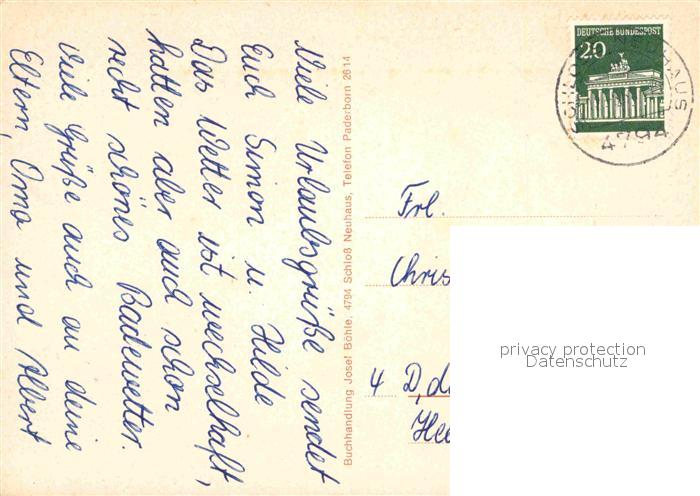 Viele Urlaubsgrüße sendet
Euch Simon u. Hilde
Das Wetter ist wechselhaft,
hatten aber auch schon
recht schönes Badewetter.
Viele Grüße auch an deine
Eltern, Oma und Albert
Buchhandlung Josef Böhle, 4794 Schloß Neuhaus, Telefon Paderborn 2614
DEUTSCHE BUNDESPOST
20
4794
Frl.
Chris
4 D,d
Hee
privacy protection
Datenschutz